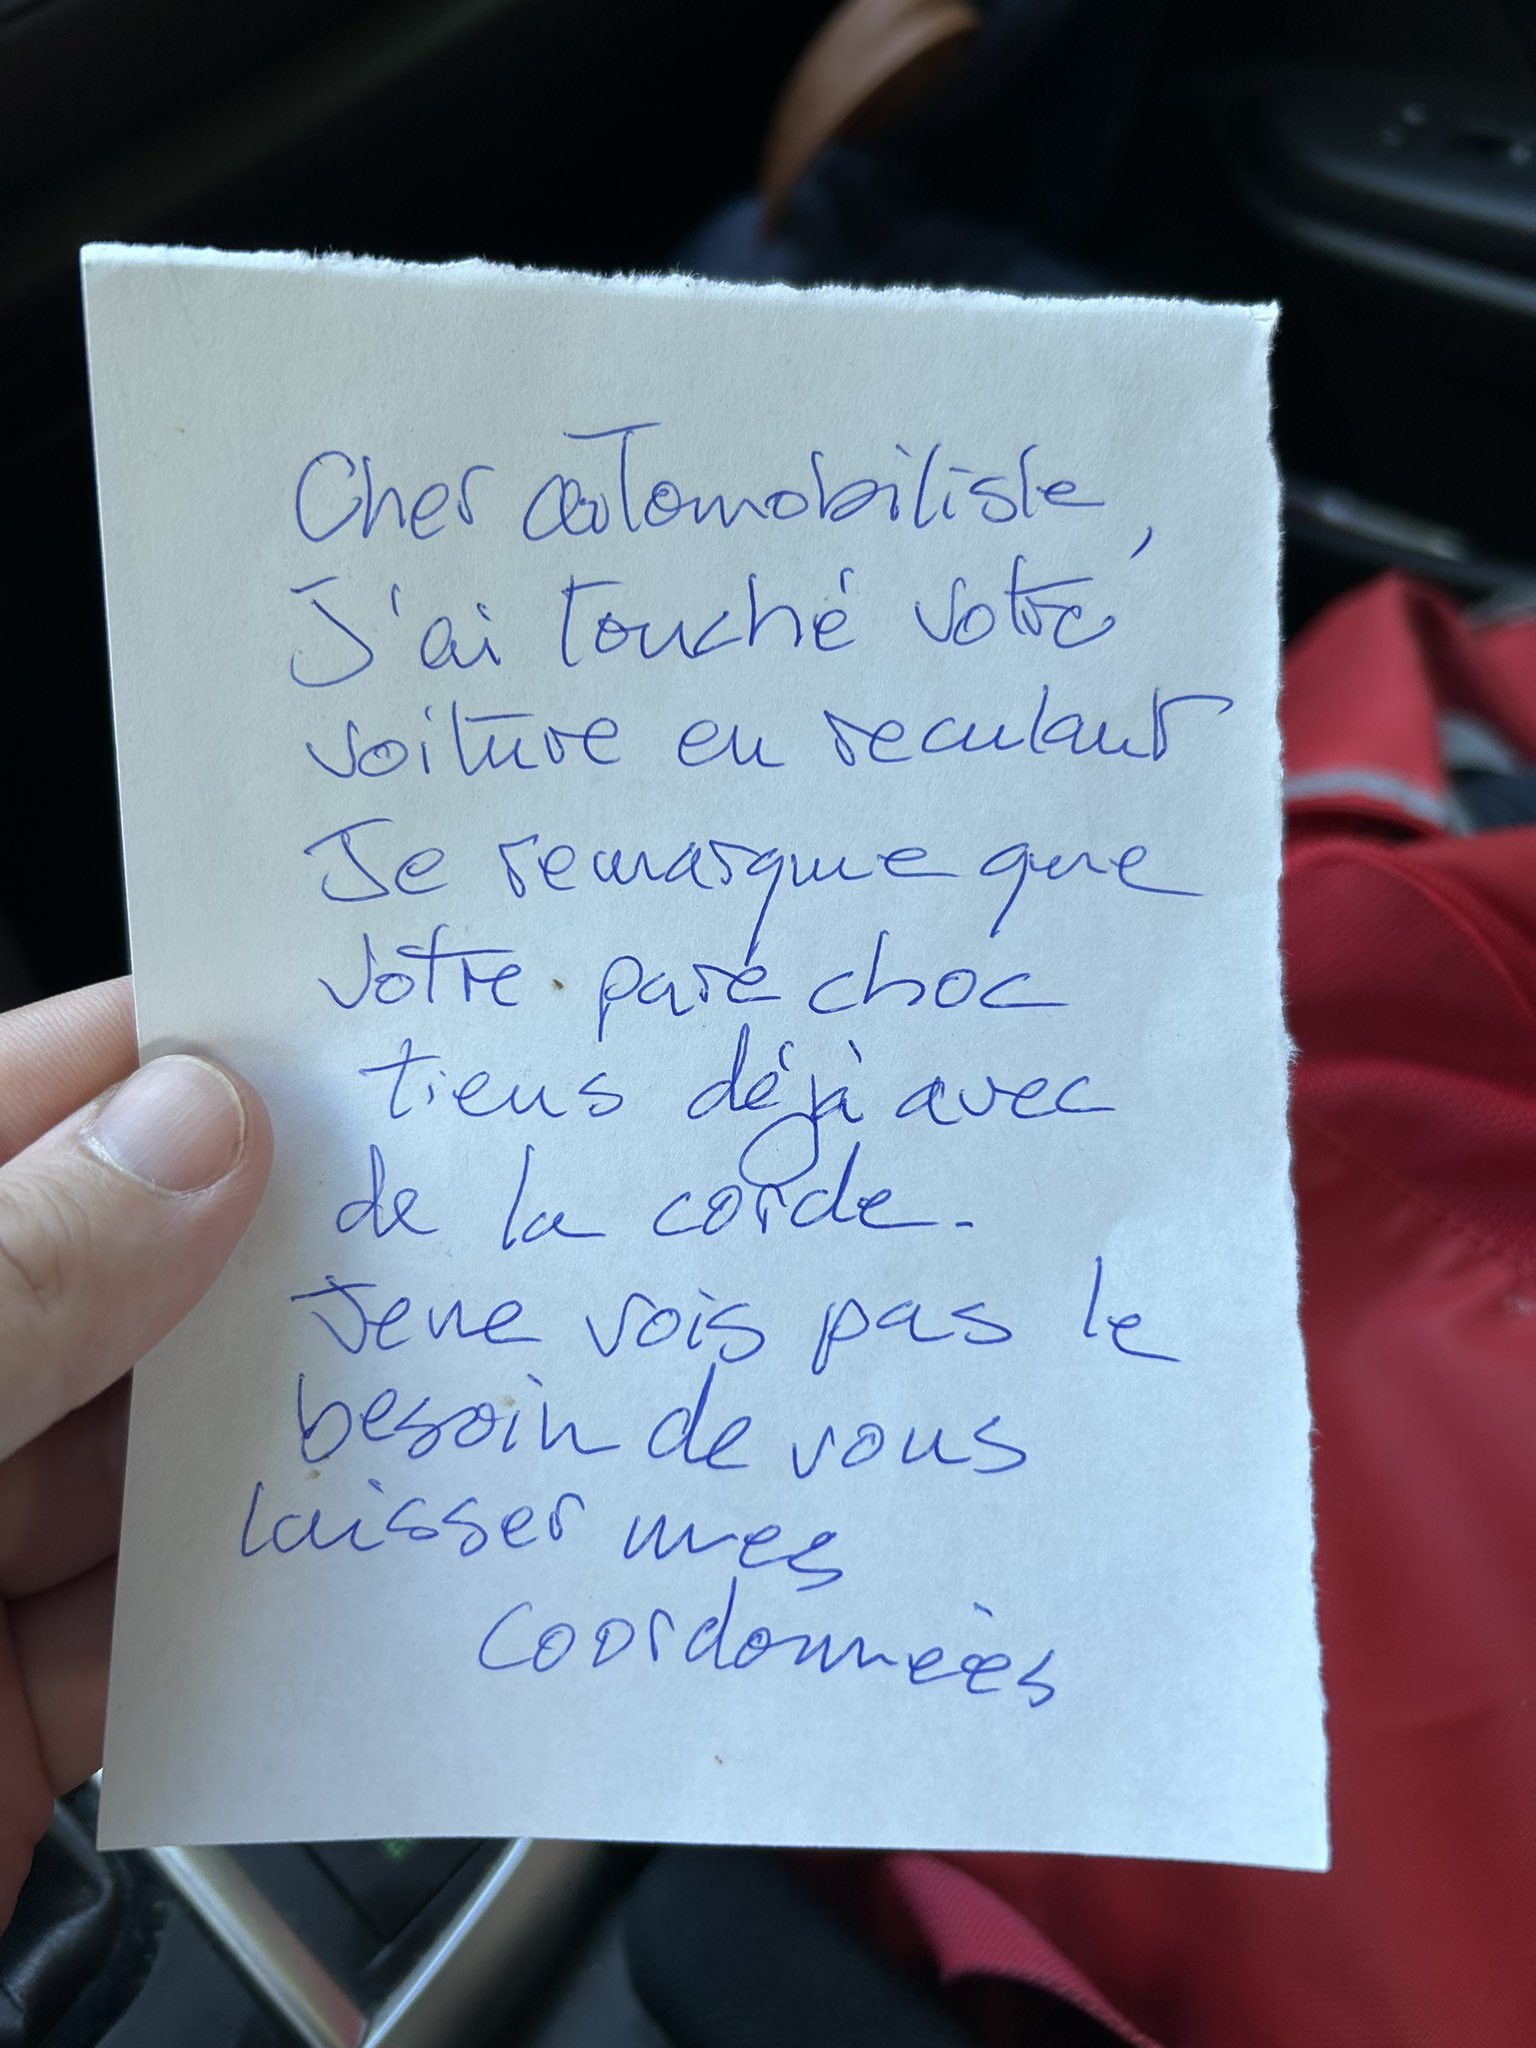 Cher automobiliste,
J'ai touché votre
voiture en reculant
Je remarque que
votre pare choc
tiens déjà avec
de la corde.
Je ne vois pas le
besoin de vous
laisser mes
coordonnées